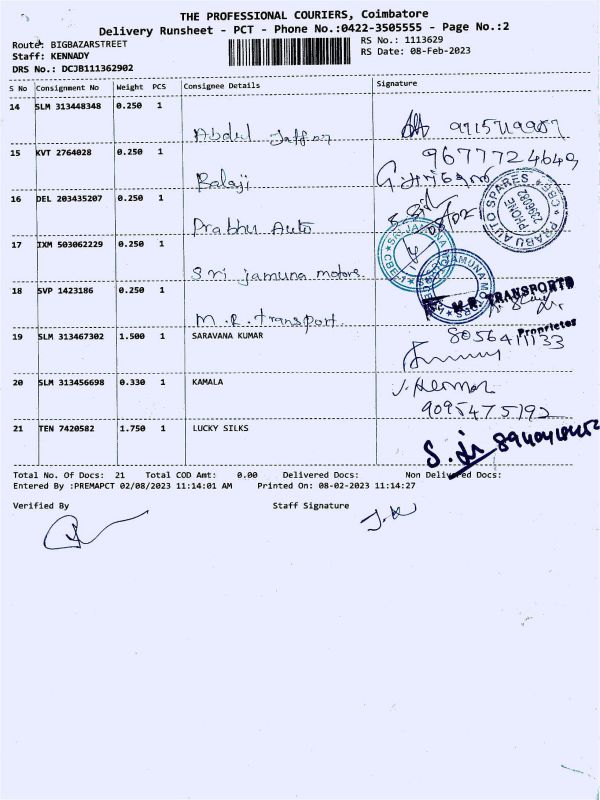 THE PROFESSIONAL COURIERS, Coimbatore
Delivery Runsheet - PCT - Phone No.:0422-3505555 - Page No.:2
Route: BIGBAZARSTREET
RS No.: 1113629
Staff: KENNADY
RS Date: 08-Feb-2023
DRS No.: DCJB111362902
S No Consignment No Weight PCS Consignee Details Signature
14 SLM 313448348 0.250 1
Abdul Jaffar
15 KVT 2764028 0.250 1
9677724649
Balaji
16 DEL 203435207 0.250 1
Prabhu Auto
PRABU AUTO SPARES CBE
PHONE
2396082
17 IXM 503062229 0.250 1
SRI JAMUNA
CBE-1
Sri jamuna motors
JAMUNA MOTORS
18 SVP 1423186 0.250 1
M.R. TRANSPORT
M.R. transport.
Proprietor
19 SLM 313467302 1.500 1 SARAVANA KUMAR
8056411133
20 SLM 313456698 0.330 1 KAMALA
9095475192
21 TEN 7420582 1.750 1 LUCKY SILKS
Total No. Of Docs: 21 Total COD Amt: 0.00 Delivered Docs: Non Delivered Docs:
Entered By :PREMAPCT 02/08/2023 11:14:01 AM Printed On: 08-02-2023 11:14:27
Verified By Staff Signature